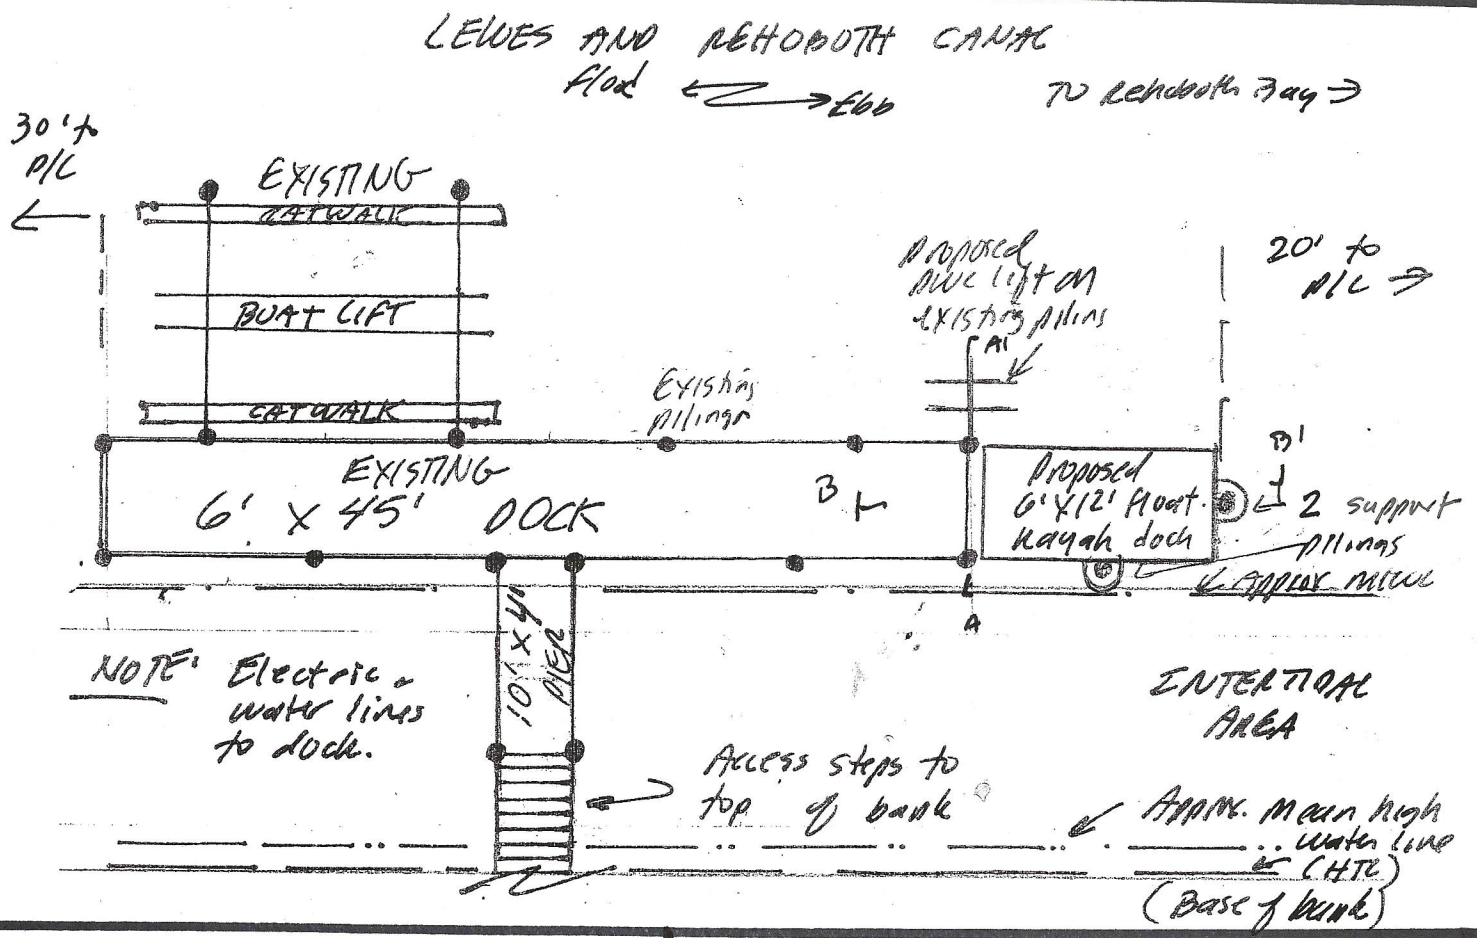 LEWES AND REHOBOTH CANAL
flood Ebb
TO Rehoboth Bay
30' to
P/L
EXISTING
CATWALK
BOAT LIFT
CATWALK
Proposed
PWC lift on
existing pilins
A1
20' to
P/L
Existing
pilings
EXISTING
6' X 45' DOCK
B
Proposed
6' X 12' float.
kayak dock
B'
2 support
pilings
Approx MLW
A
10' X 4'
PIER
NOTE: Electric
water lines
to dock.
INTERTIDAL
AREA
Access steps to
top of bank
Approx. Mean high
water line
(HTL)
(Base of bank)